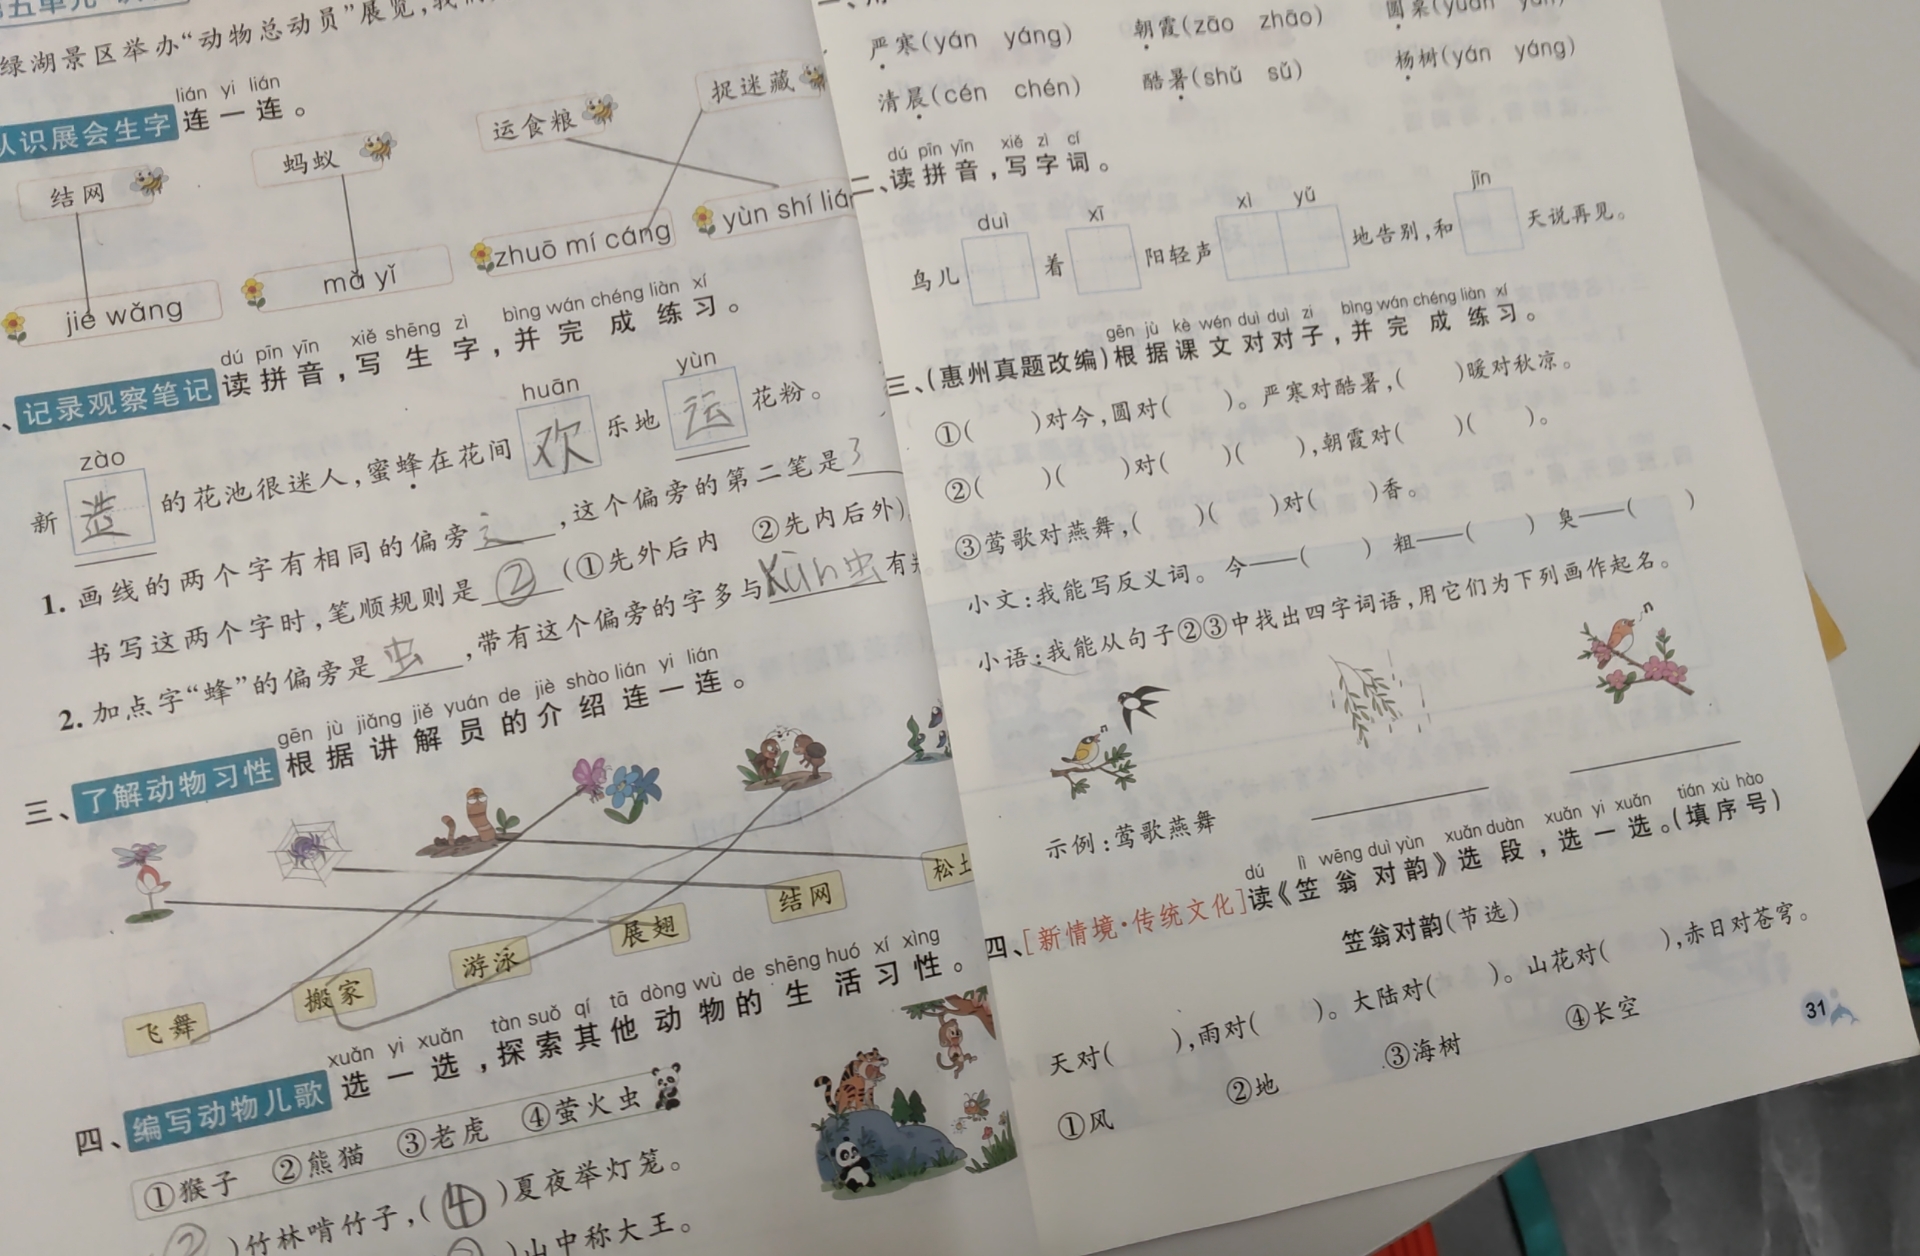 绿湖景区举办“动物总动员”展览，我们
lián yi lián
认识展会生字 连一连。
结网 蚂蚁 运食粮 捉迷藏
jié wǎng mǎ yǐ zhuō mí cáng yùn shí lián
dú pīn yīn xiě shēng zì bìng wán chéng liàn xí
记录观察笔记 读拼音，写生字，并完成练习。
zào huān yùn
新造的花池很迷人，蜜蜂在花间欢乐地运花粉。
1. 画线的两个字有相同的偏旁辶，这个偏旁的第二笔是㇋
书写这两个字时，笔顺规则是②(①先外后内 ②先内后外)
2. 加点字“蜂”的偏旁是虫，带有这个偏旁的字多与kūn虫有
gēn jù jiǎng jiě yuán de jiè shào lián yi lián
三、了解动物习性 根据讲解员的介绍连一连。
飞舞 搬家 游泳 展翅 结网 松土
xuǎn yi xuǎn tàn suǒ qí tā dòng wù de shēng huó xí xìng
四、编写动物儿歌 选一选，探索其他动物的生活习性。
①猴子 ②熊猫 ③老虎 ④萤火虫
(②)竹林啃竹子，(④)夏夜举灯笼。
)山中称大王。
严寒(yán yáng) 朝霞(zāo zhāo)
清晨(cén chén) 酷暑(shǔ sǔ) 杨树(yán yáng)
dú pīn yīn xiě zì cí
二、读拼音，写字词。
duì xī xì yǔ jīn
鸟儿 着 阳轻声 地告别，和 天说再见。
gēn jù kè wén duì duì zi bìng wán chéng liàn xí
三、(惠州真题改编)根据课文对对子，并完成练习。
①( )对今，圆对( )。严寒对酷暑，( )暖对秋凉。
②( )( )对( )( )，朝霞对( )( )。
③莺歌对燕舞，( )( )对( )香。
小文：我能写反义词。今——( ) 粗——( ) 臭——( )
小语：我能从句子②③中找出四字词语，用它们为下列画作起名。
示例：莺歌燕舞
dú lì wēng duì yùn xuǎn duàn xuǎn yi xuǎn tián xù hào
四、[新情境·传统文化]读《笠翁对韵》选段，选一选。(填序号)
笠翁对韵(节选)
天对( )，雨对( )。大陆对( )。山花对( )，赤日对苍穹。
①风 ②地 ③海树 ④长空
31